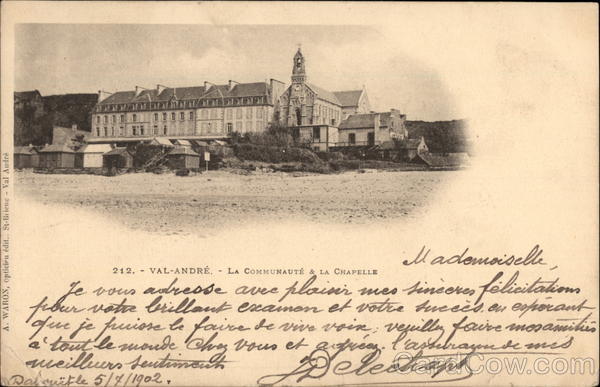 212. - VAL-ANDRÉ. - LA COMMUNAUTÉ & LA CHAPELLE
A. WARON, opticien édit., St-Brieuc - Val André
Mademoiselle,
Je vous adresse avec plaisir mes sincères félicitations
pour votre brillant examen et votre succès en espérant
que je puisse le faire de vive voix; veuillez faire mes amitiés
à tout le monde chez vous et agréez l'assurance de mes
meilleurs sentiments
le 5/7/1902.
CardCow.com